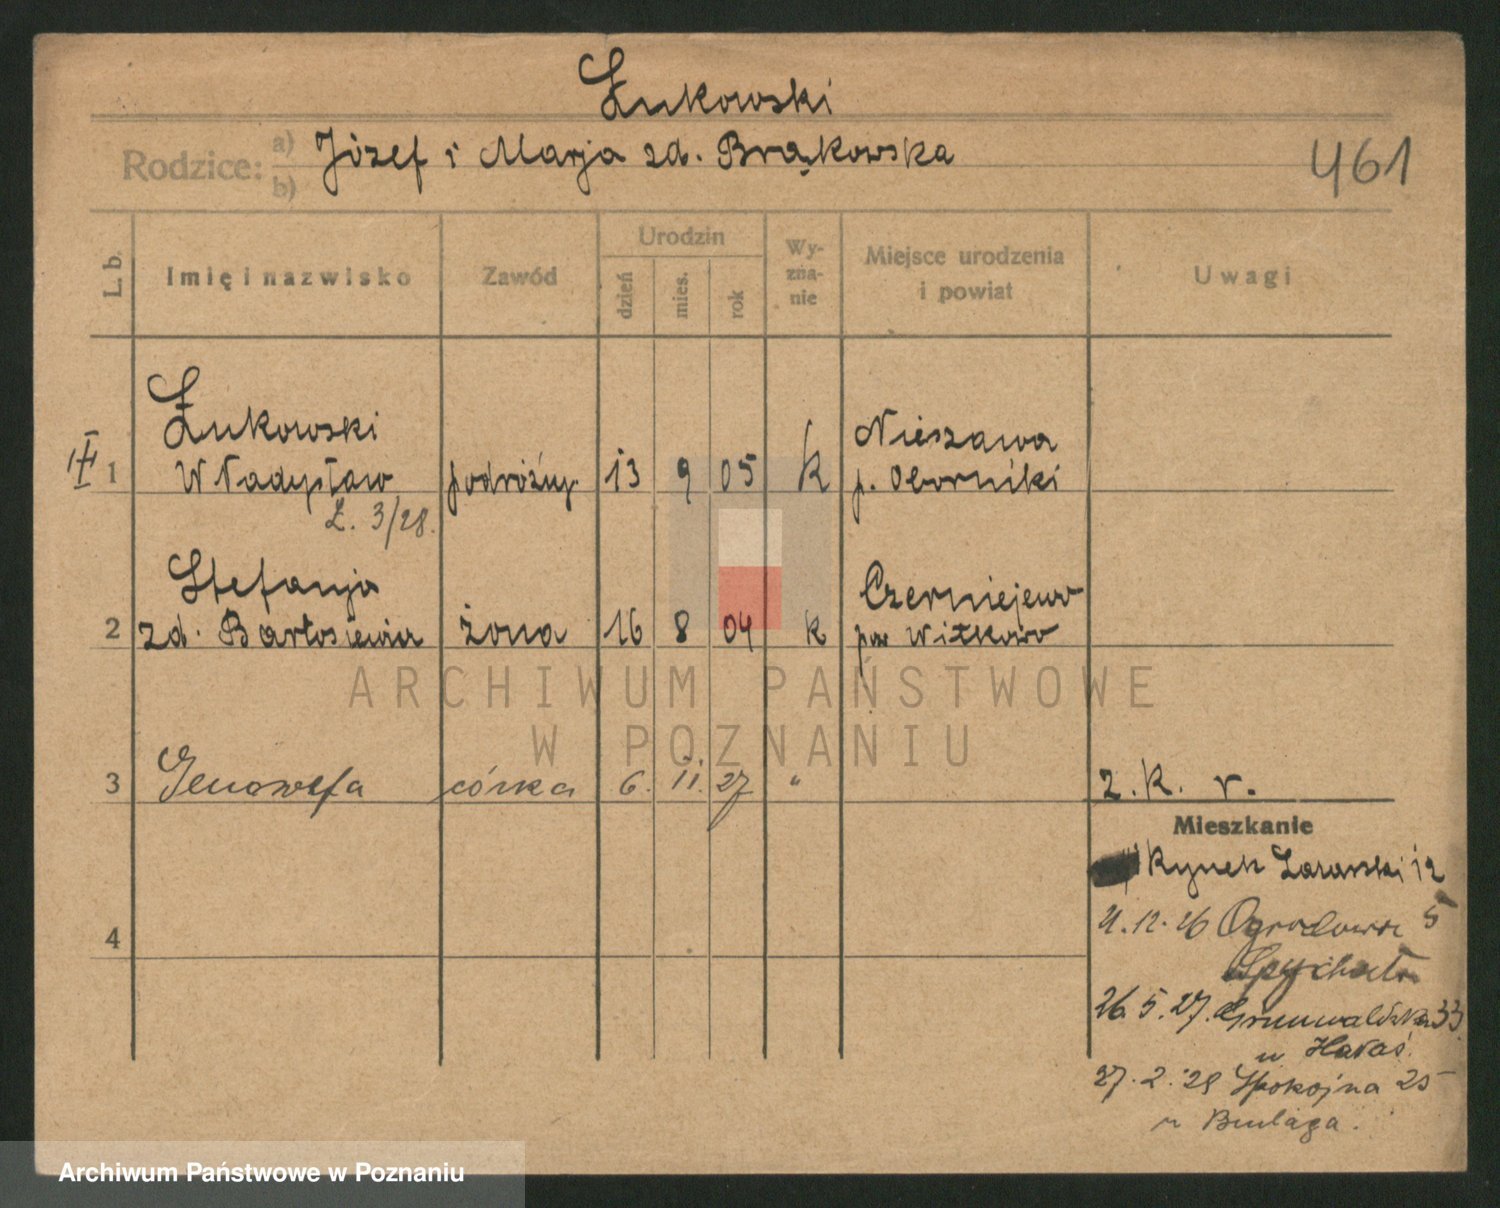 Żukowski
Rodzice: a) Józef i Marja zd. Brąkowska
b)
461
L. b. Imię i nazwisko Zawód Urodzin dzień mies. rok Wyzna-nie Miejsce urodzenia i powiat Uwagi
Żukowski Nieszawa
III 1 Władysław podróżny 13 9 05 k p. Oborniki
Ż. 3/28.
Stefanja Czerniejewo
2 zd. Bartosiewicz żona 16 8 04 k pow Witkowo
ARCHIWUM PAŃSTWOWE
W POZNANIU
3 Genowefa córka 6. 11. 27 " 2. K. r.
Mieszkanie
Rynek Łazarski 12
4 21.12.26 Ogrodowa 5
Spychała
26.5.27. Grunwaldzka 33
u Hałas.
27.2.28 Spokojna 25
u Bulaga.
Archiwum Państwowe w Poznaniu